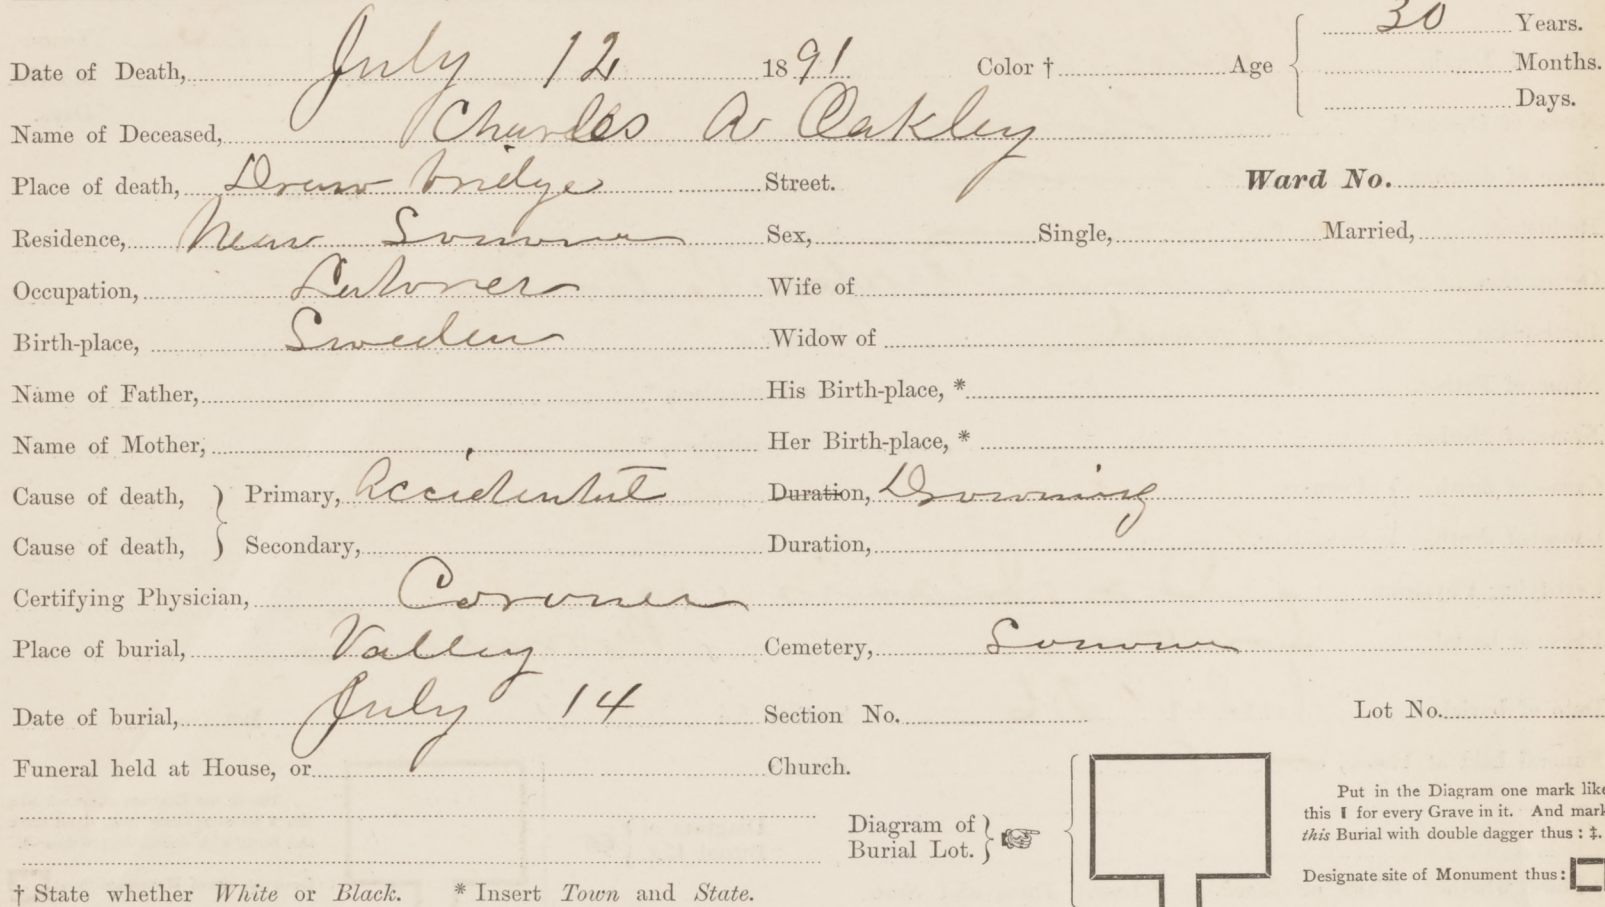 30 Years.
Date of Death, July 12 1891 Color † Age Months.
Days.
Name of Deceased, Charles A Oakley
Place of death, Draw bridge Street. Ward No.
Residence, Near Sonoma Sex, Single, Married,
Occupation, Laborer Wife of
Birth-place, Sweden Widow of
Name of Father, His Birth-place, *
Name of Mother, Her Birth-place, *
Cause of death, } Primary, Accidental Duration, Drowning
Cause of death, } Secondary, Duration,
Certifying Physician, Coroner
Place of burial, Valley Cemetery, Sonoma
Date of burial, July 14 Section No. Lot No.
Funeral held at House, or Church.
Diagram of
Burial Lot.
Put in the Diagram one mark like
this ❙ for every Grave in it. And mark
this Burial with double dagger thus : ‡.
Designate site of Monument thus :
† State whether White or Black. * Insert Town and State.